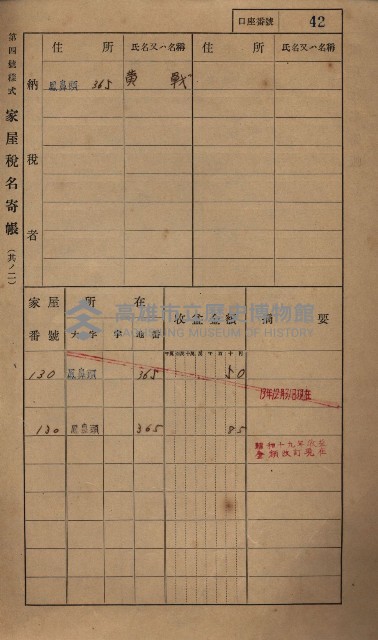 口座番號 42
第四號樣式 家屋稅名寄帳 (其ノ二)
納稅者
住所 氏名又ハ名稱 住所 氏名又ハ名稱
鳳鼻頭 365 黄戟
家屋番號 所在 收益金額 摘要
大字 字 地番
高雄市立歷史博物館
KAOHSIUNG MUSEUM OF HISTORY
130 鳳鼻頭 365 50
19年12月31日現在
130 鳳鼻頭 365 85
昭和十九年收益
金額改訂現在